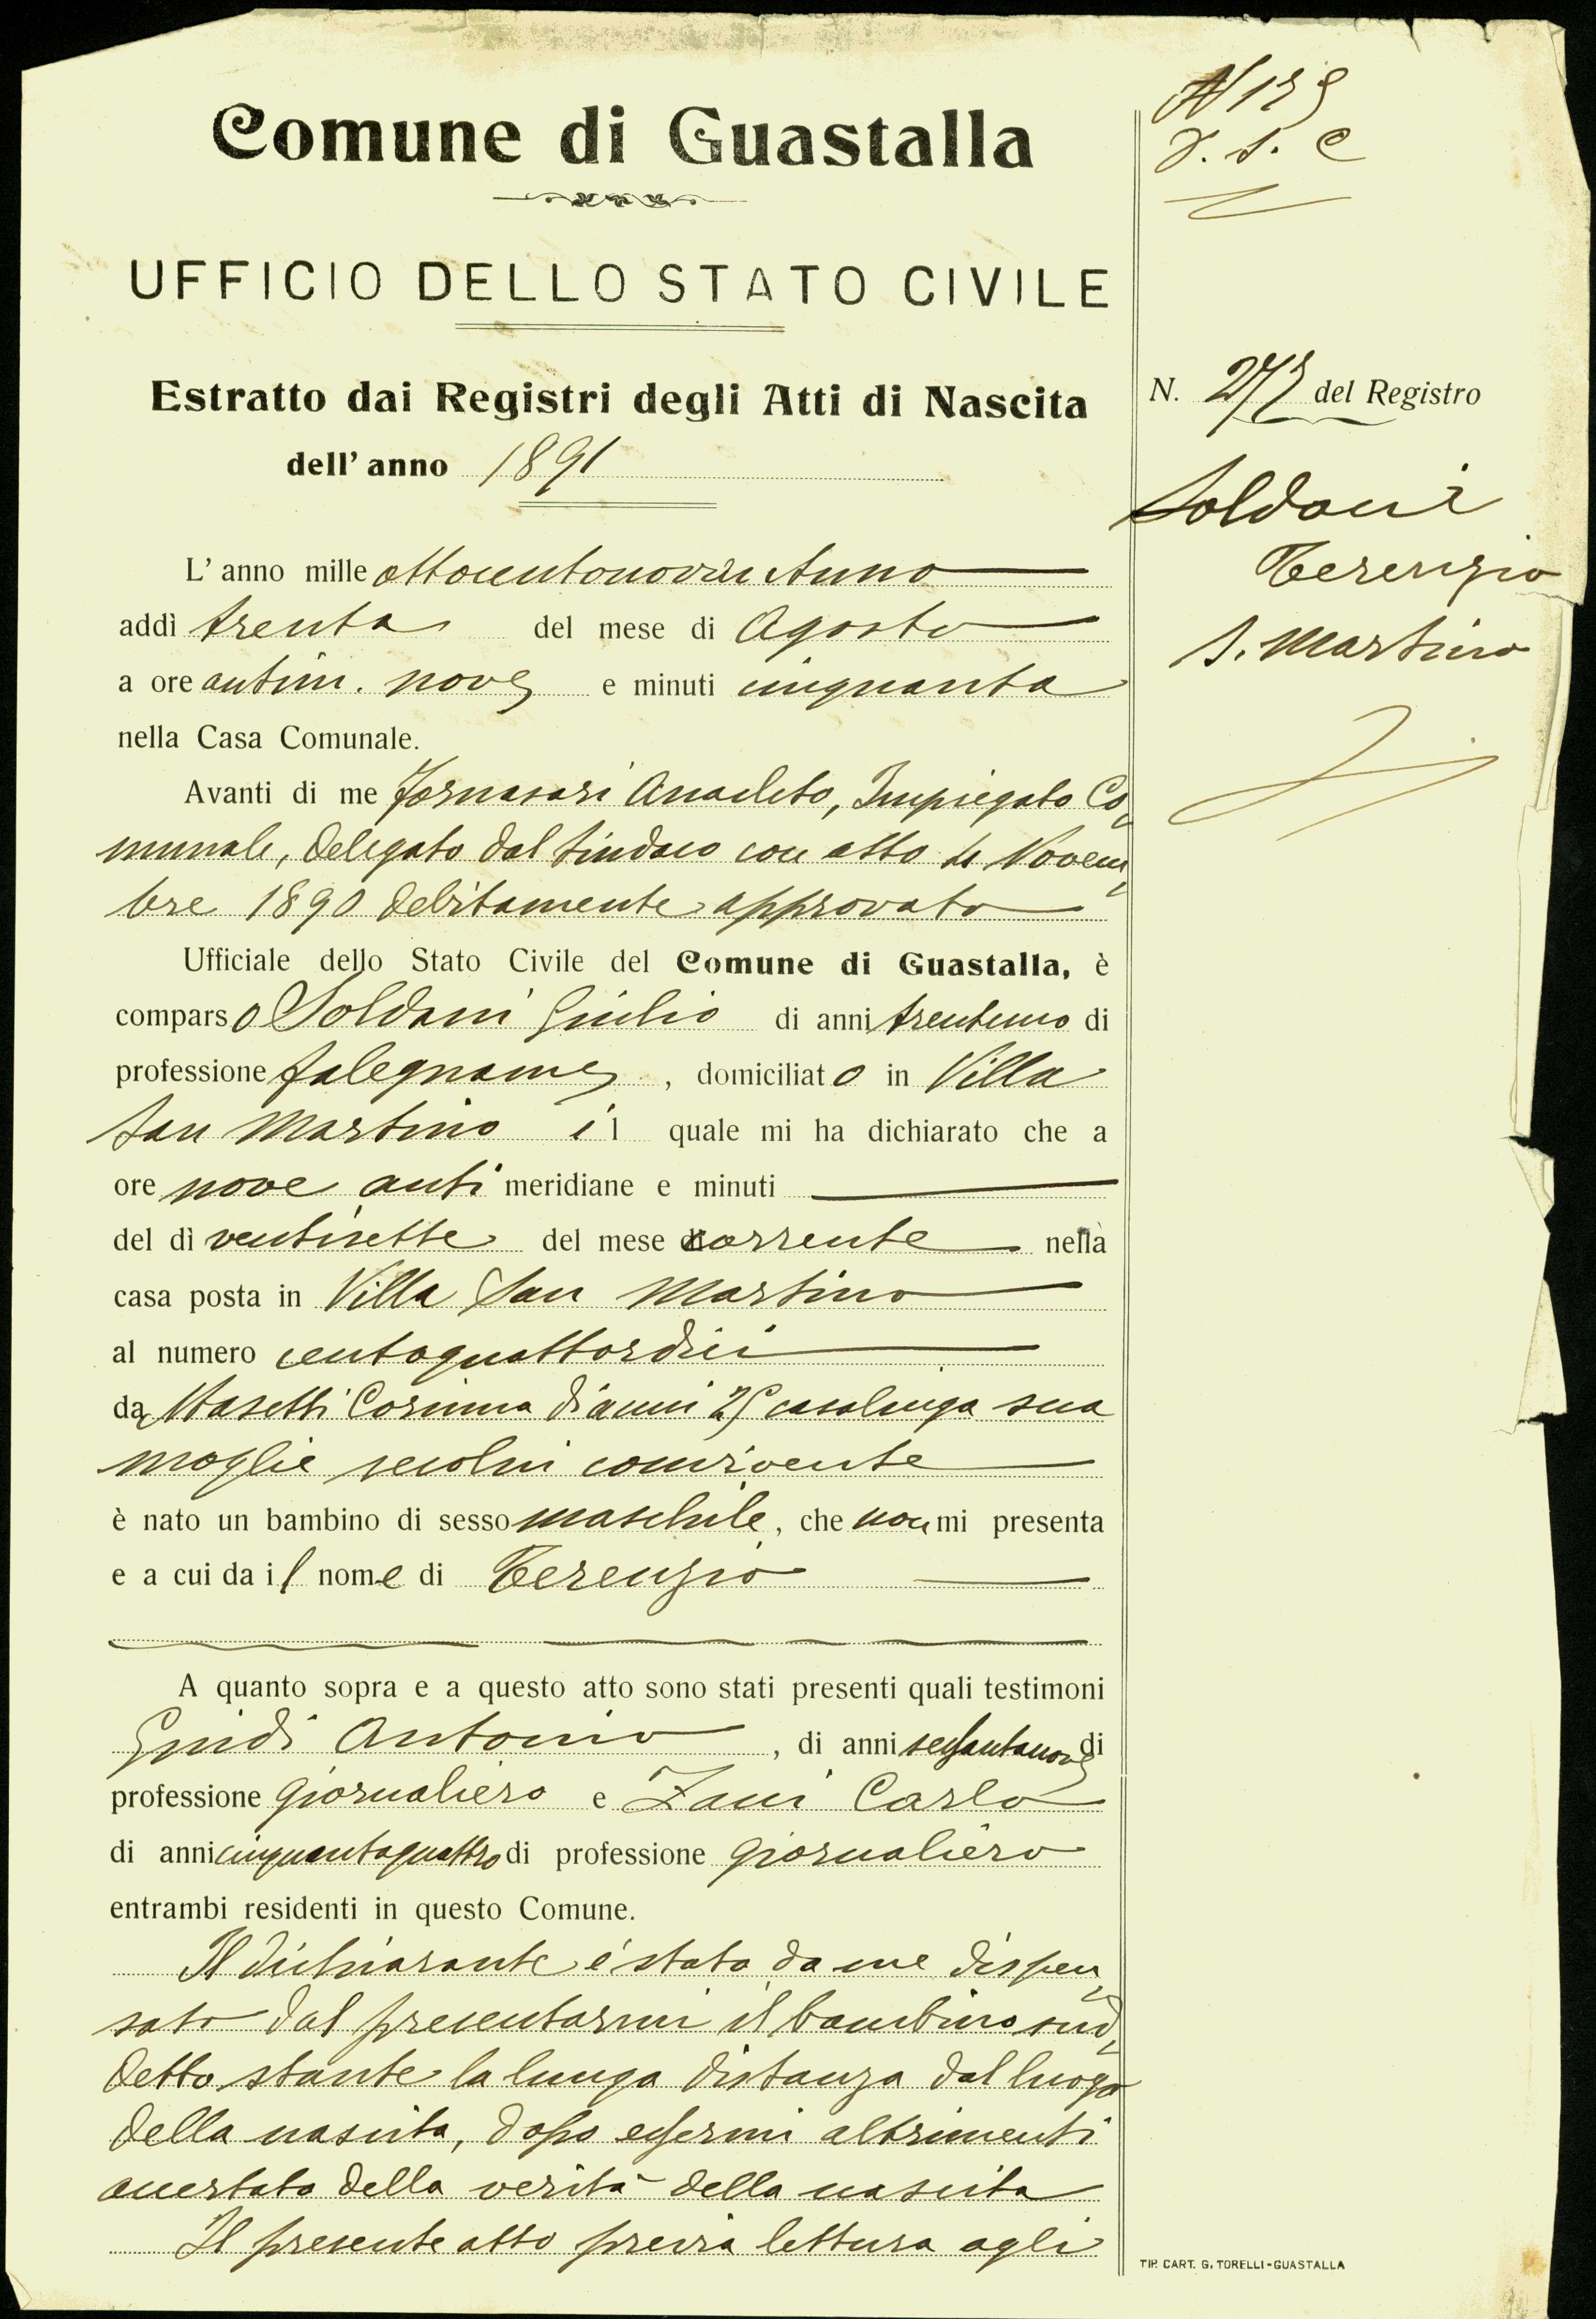 Comune di Guastalla
UFFICIO DELLO STATO CIVILE
Estratto dai Registri degli Atti di Nascita
dell' anno 1891
L' anno mille ottocentonovan
addì trenta del mese di Agosto
a ore antim. nove e minuti cinquanta
nella Casa Comunale.
Avanti di me Fornasari Anacleto, Impiegato Co„
munale, delegato dal Sindaco con atto Novem„
bre 1890 debitamente approvato
Ufficiale dello Stato Civile del Comune di Guastalla, è
comparso Soldani Giulio di anni trentuno di
professione falegname, domiciliato in Villa
San Martino il quale mi ha dichiarato che a
ore nove anti meridiane e minuti
del dì ventisette del mese corrente nella
casa posta in Villa San Martino
al numero centoquattordici
da Masetti Corinna di anni casalinga sua
moglie secolui convivente
è nato un bambino di sesso maschile, che non mi presenta
e a cui da il nome di Terenzio
A quanto sopra e a questo atto sono stati presenti quali testimoni
Guidi Antonio, di anni sessantanove di
professione giornaliero e Zani Carlo
di anni cinquantaquattro di professione giornaliero
entrambi residenti in questo Comune.
Il dichiarante è stato da me dispen„
sato dal presentarmi il bambino sud„
detto stante la lunga distanza dal luogo
della nascita, dopo essermi altrimenti
accertato della verità della nascita
Il presente atto previa lettura agli
N
N. del Registro
Soldani
Terenzio
S. Martino
TIP. CART. G. TORELLI-GUASTALLA